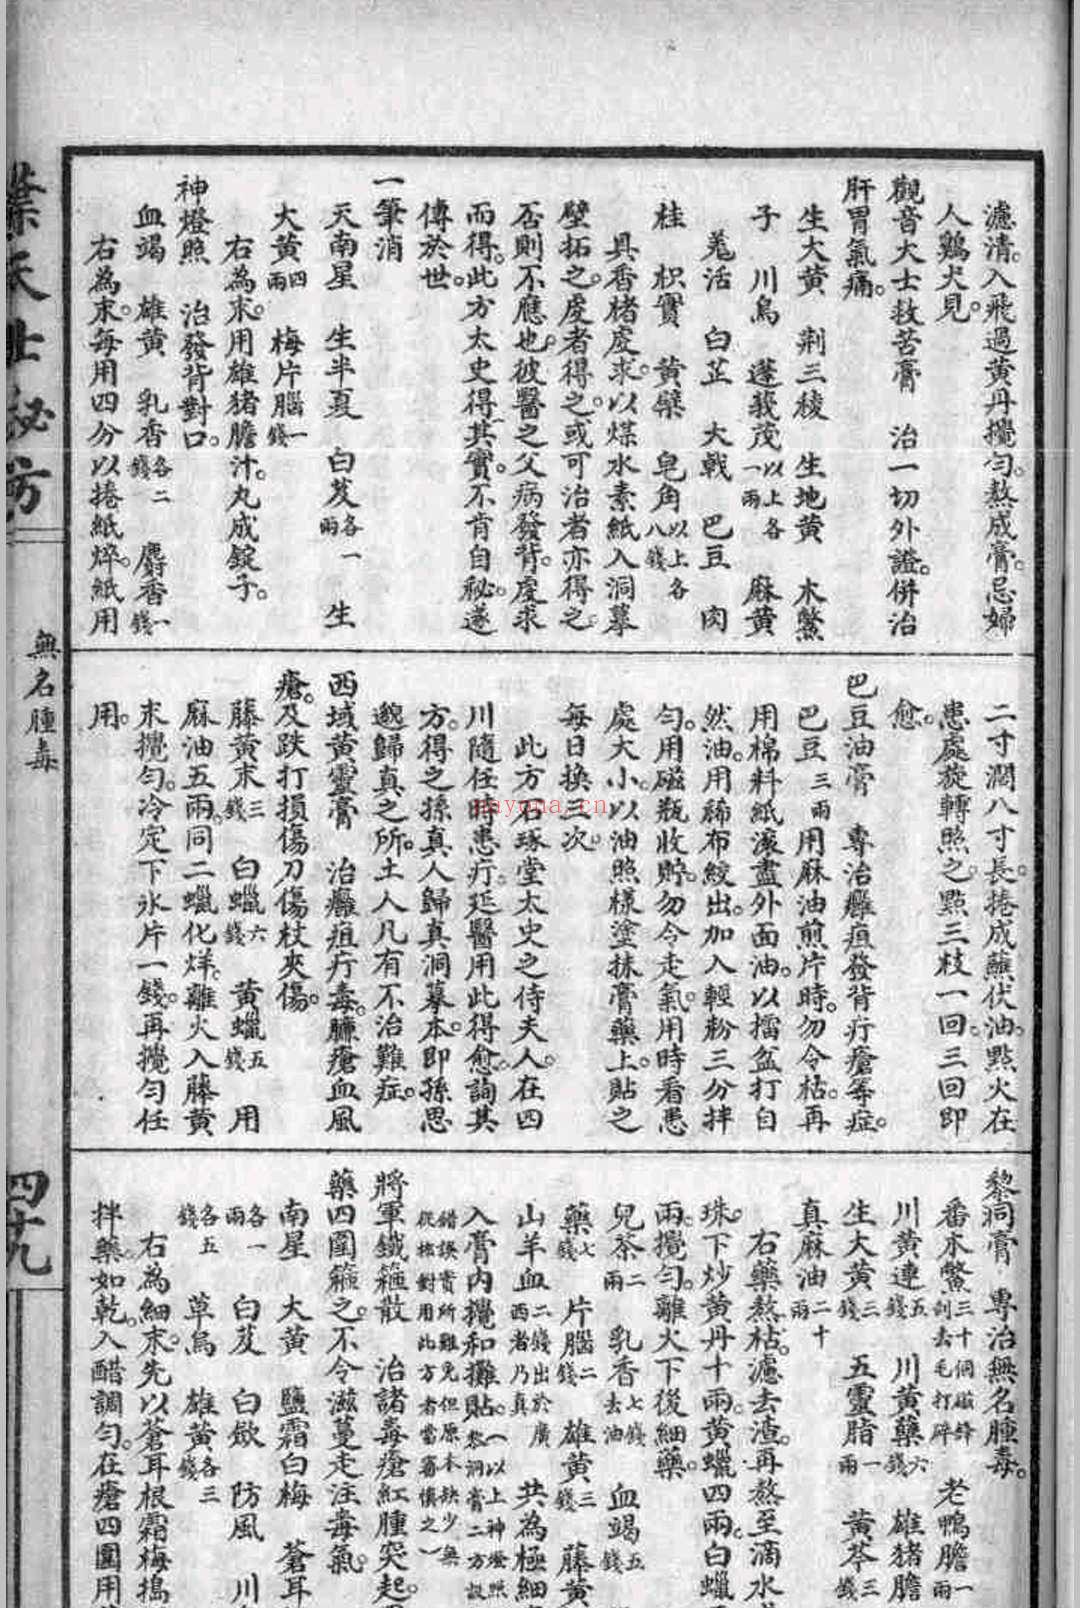 濾清。入飛過黃丹攪勻。熬成膏。忌婦
人鷄犬見。
觀音大士救苦膏　治一切外證。併治
肝胃氣痛。
生大黃　荆三稜　生地黃　木鱉
子　川烏　蓬莪茂以上各一兩　麻黃
羗活　白芷　大戟　巴豆　肉
桂　枳實　黃檗　皂角以上各八錢
具香楮虔求。以煤水素紙入洞摹
壁拓之。虔者得之。或可治者亦得之。
否則不應也。彼醫之父病發背。虔求
而得。此方太史得其實。不肯自秘。遂
傳於世。
一筆消
天南星　生半夏　白芨各一兩　生
大黃四兩　梅片腦一錢
右為末。用雄猪膽汁。丸成錠子。
神燈照　治發背對口。
血竭　雄黃　乳香各二錢　麝香一錢
右為末。每用四分以捲紙焠。紙用
二寸濶八寸長。捲成蘸伏油。點火在
患處旋轉照之。點三枝一回。三回即
愈。
巴豆油膏　專治癰疽發背疔瘡等症。
巴豆三兩　用麻油煎片時。勿令枯。再
用棉料紙滾盡外面油。以擂盆打自
然油。用稀布絞出。加入輕粉三分拌
勻。用磁瓶收貯。勿令走氣。用時看患
處大小。以油照樣塗抹膏藥上。貼之
每日換三次。
此方石琢堂太史之侍夫人。在四
川隨任時患疔。延醫用此得愈。詢其
方。得之孫真人歸真洞摹本。即孫思
邈歸真之所。土人凡有不治難症。
西域黃靈膏　治癰疽疔毒。臁瘡血風
瘡。及跌打損傷刀傷杖夾傷。
藤黃末三錢　白蠟六錢　黃蠟五錢　用
麻油五兩。同二蠟化烊。離火入藤黃
末攪勻。冷定下氷片一錢。再攪勻任
用。
黎洞膏　專治無名腫毒。
番木鱉三十個磁鋒刮去毛打碎　老鴨膽一兩
川黃連五錢　川黃蘗六錢　雄猪膽
生大黃三錢　五靈脂一兩　黃芩三錢
真麻油二十兩
右藥熬枯。濾去渣。再熬至滴水
珠。下炒黃丹十兩。黃蠟四兩。白蠟
兩。攪勻。離火下後細藥。
兒茶二兩　乳香七錢去油　血竭五錢
藥七錢　片腦二錢　雄黃三錢　藤黃
山羊血二錢出於廣西者乃真　共為極細
入膏內攪和攤貼。（以上神燈照黎洞膏二方設錯誤實所難免但原本缺少無從核對用此方者當審慎之）
將軍鐵箍散　治諸毒瘡紅腫突起。
藥四圍箍之。不令滋蔓走注毒氣。
南星　大黃　鹽霜白梅　蒼耳
各一兩　白芨　白歛　防風　川
各五錢　草烏　雄黃各三錢
右為細末。先以蒼耳根霜梅搗
拌藥。如乾。入醋調勻。在瘡四圍用
葉天士秘方
無名腫毒
四十九
nayona.cn